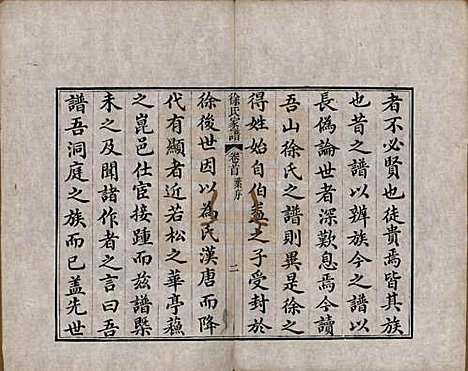 者不必賢也徒貴焉皆其族
也昔之譜以辨族今之譜以
長偽論世者深歎息焉今讀
吾山徐氏之譜則異是徐之
得姓始自伯益之子受封於
徐氏家譜 卷首 葉序 二
徐後世因以為氏漢唐而降
代有顯者近若松之華亭蘓
之崑邑仕宦接踵而兹譜槩
未之及聞諸作者之言曰吾
譜吾洞庭之族而已蓋先世